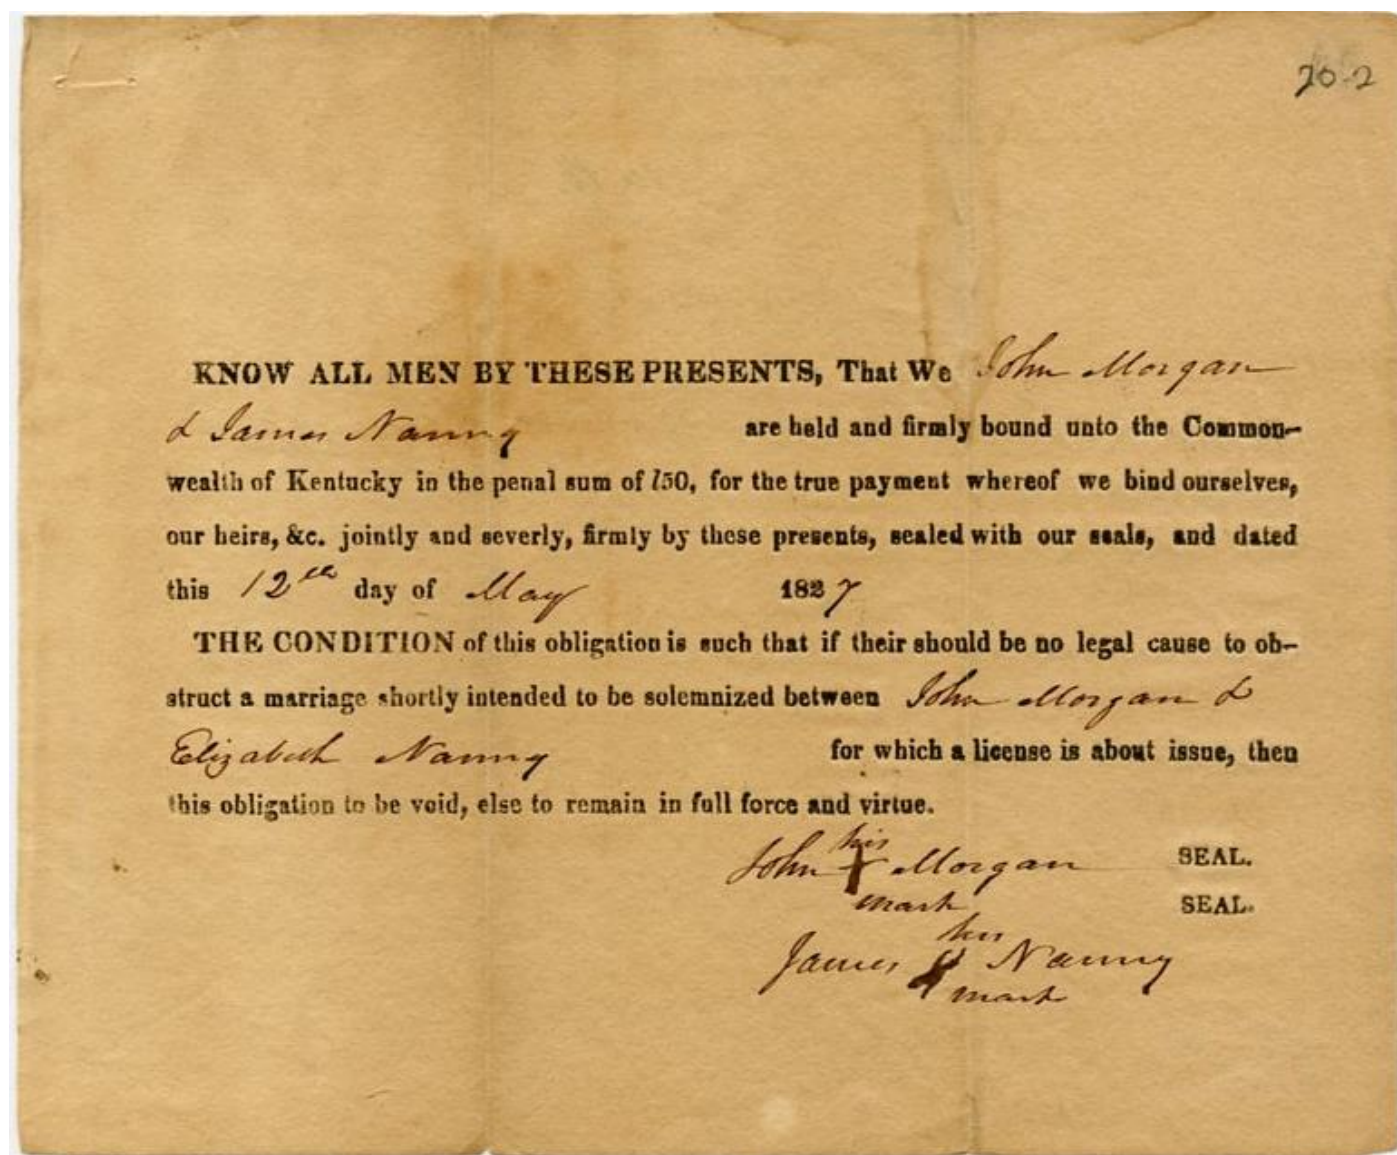 20-2
KNOW ALL MEN BY THESE PRESENTS, That We John Morgan
& James Nanny are held and firmly bound unto the Common-
wealth of Kentucky in the penal sum of l50, for the true payment whereof we bind ourselves,
our heirs, &c. jointly and severly, firmly by these presents, sealed with our seals, and dated
this 12th day of May 1827
THE CONDITION of this obligation is such that if their should be no legal cause to ob-
struct a marriage shortly intended to be solemnized between John Morgan &
Elizabeth Nanny for which a license is about issue, then
this obligation to be void, else to remain in full force and virtue.
his
John Morgan SEAL.
mark SEAL.
his
James Nanny
mark